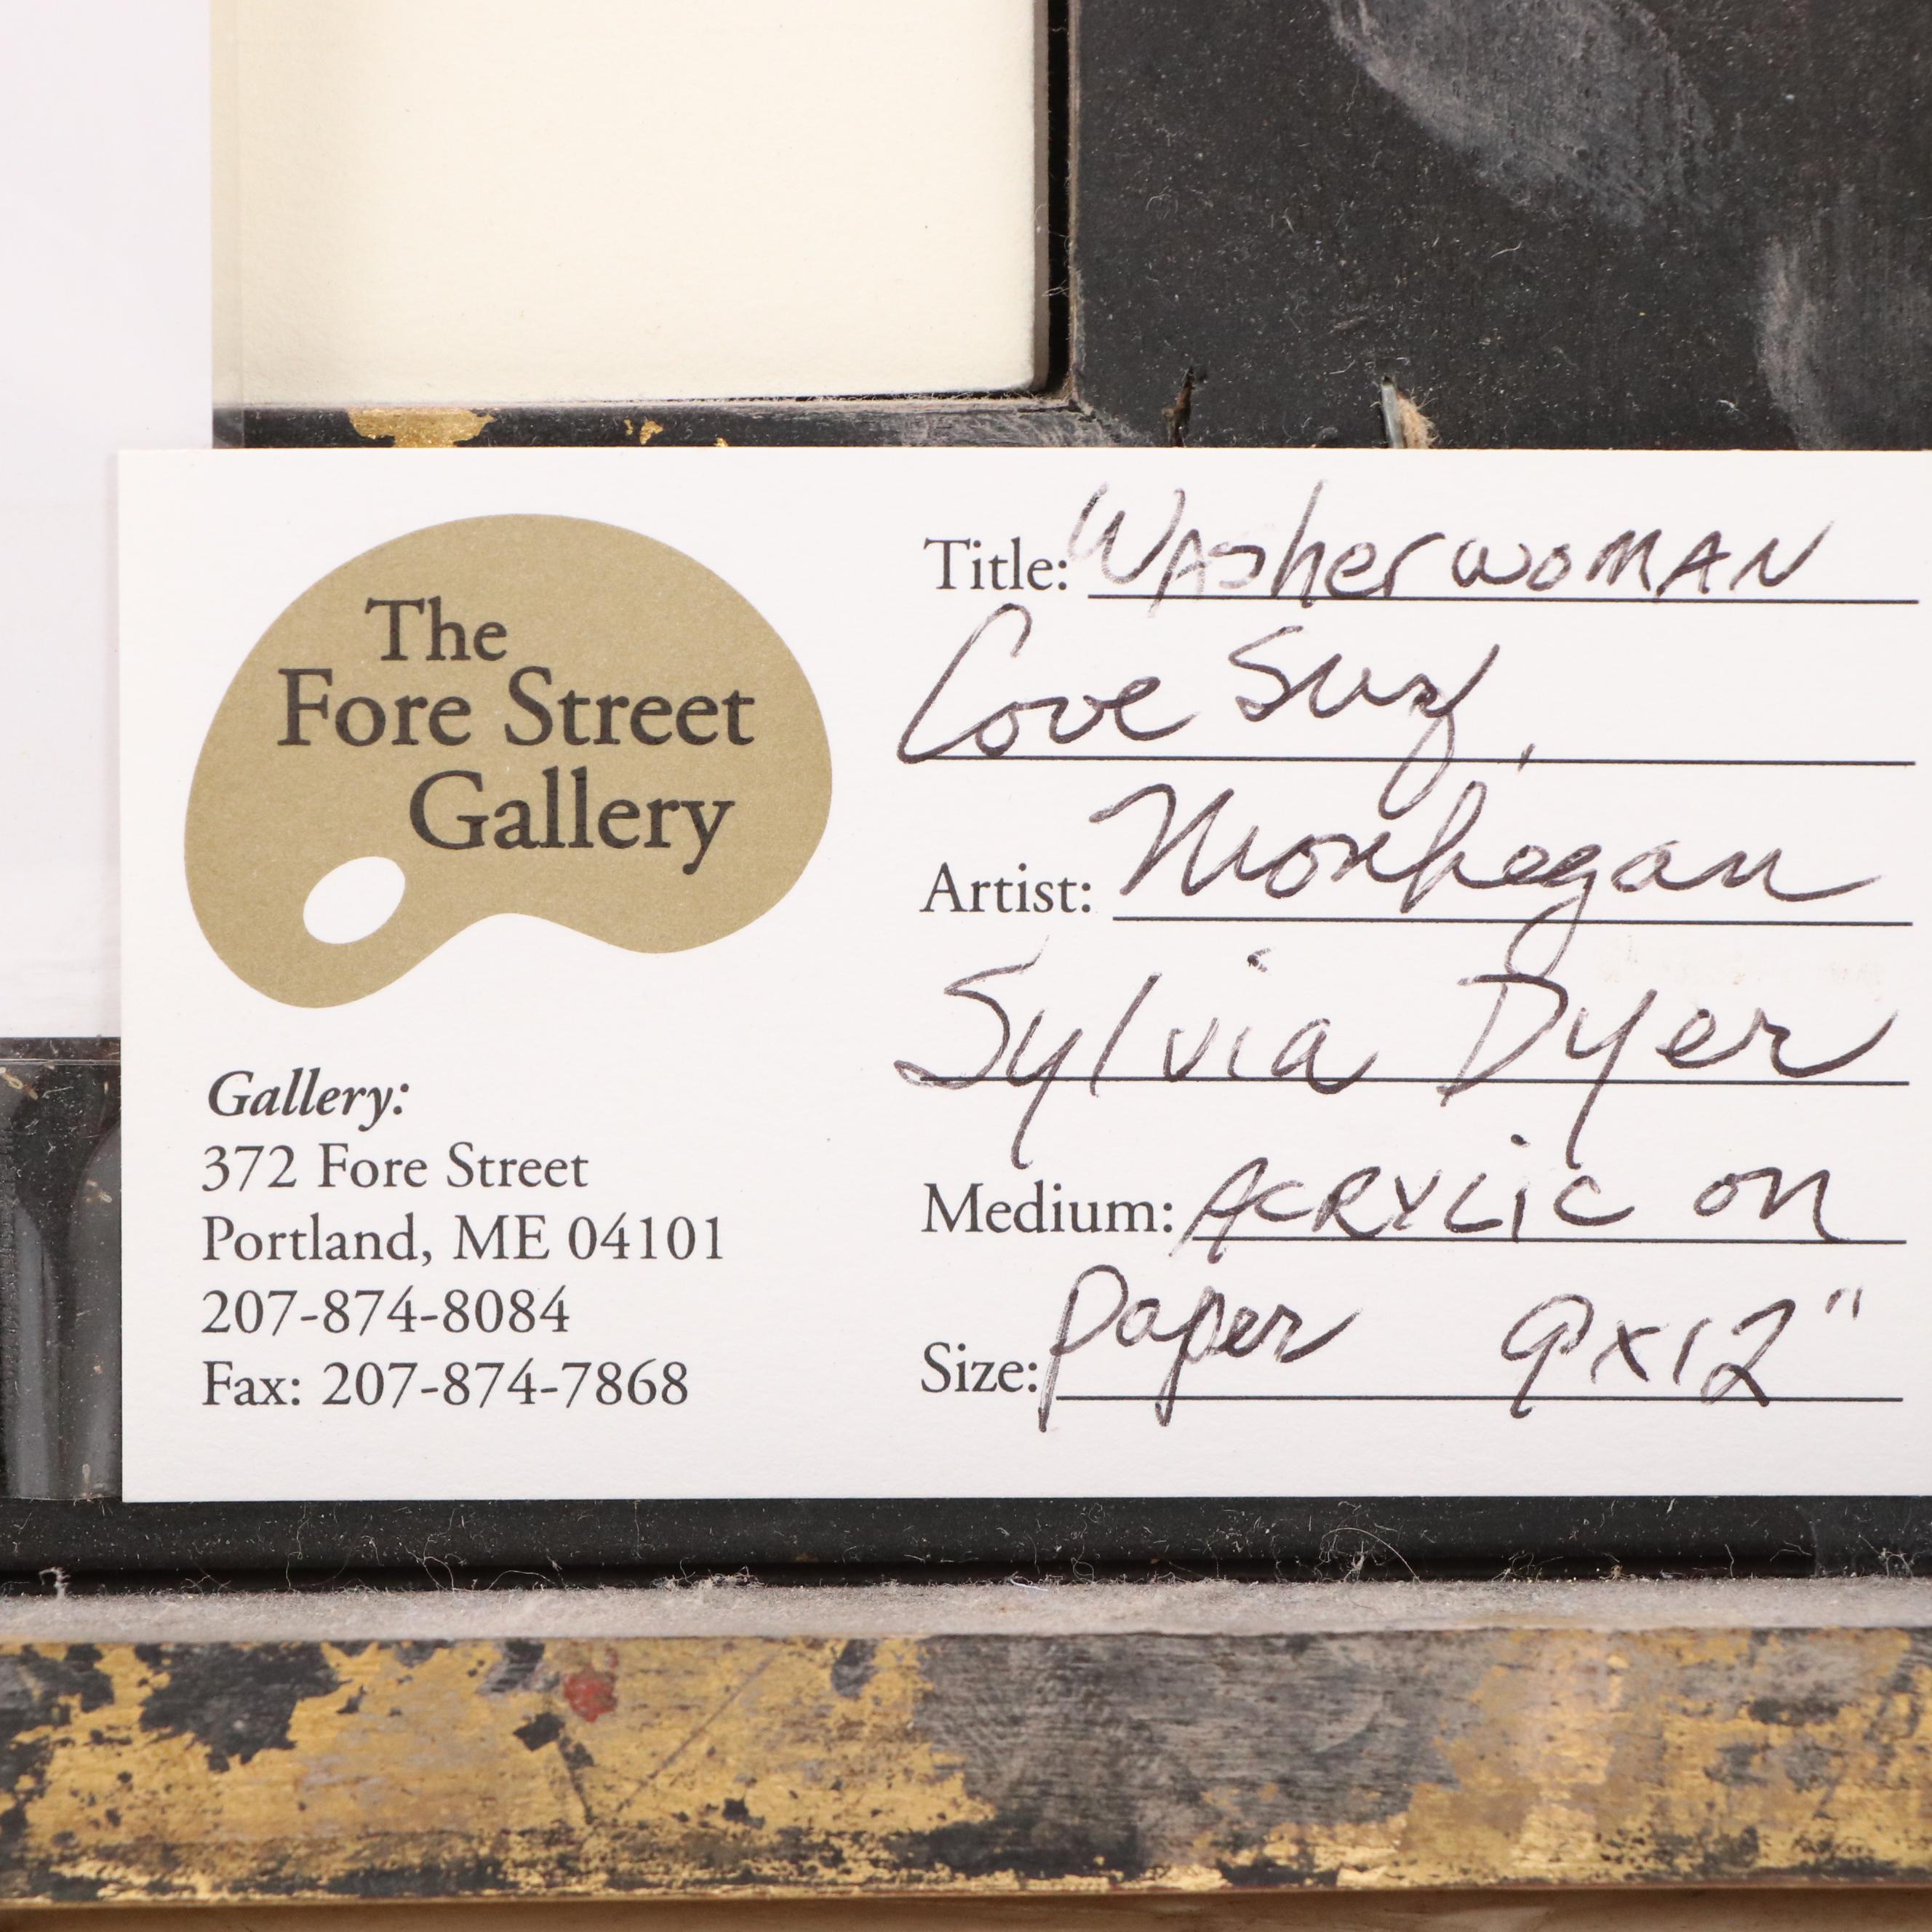 The
Fore Street
Gallery
Gallery:
372 Fore Street
Portland, ME 04101
207-874-8084
Fax: 207-874-7868
Title: Washerwoman
Cove Surf,
Monhegan
Artist:
Sylvia Dyer
Medium: Acrylic on
paper 9x12"
Size: